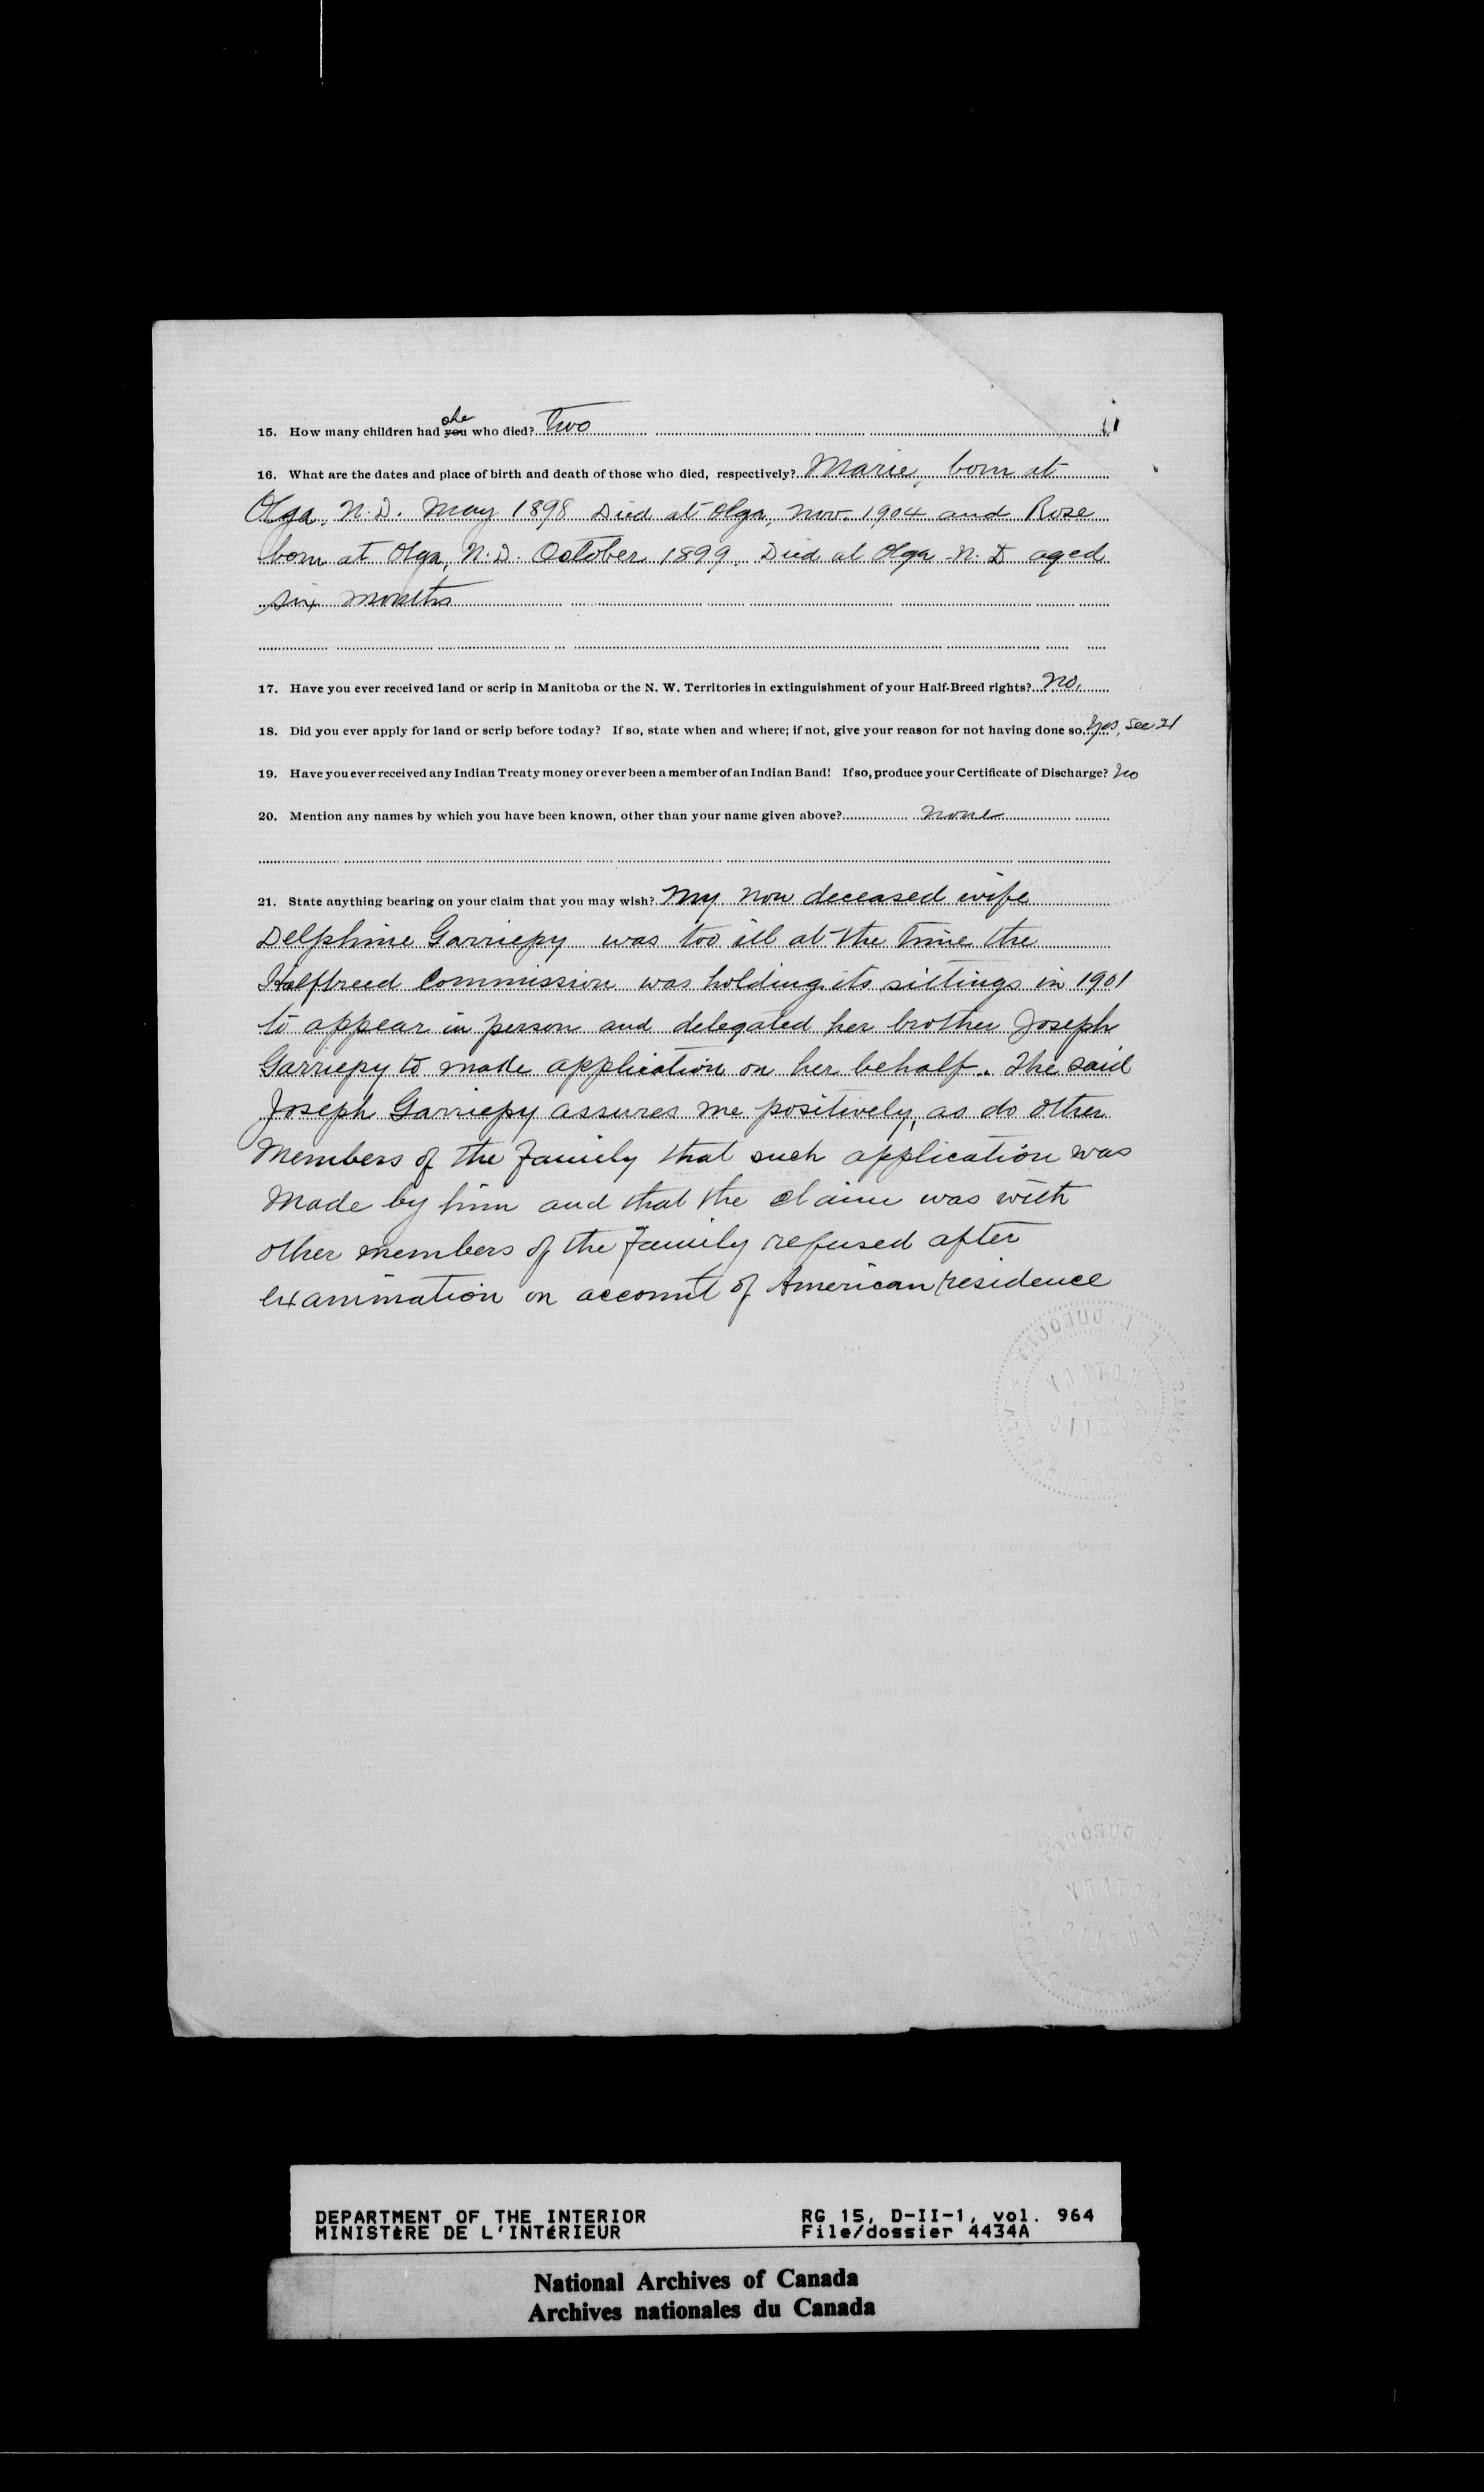 she
15. How many children had you who died? Two
16. What are the dates and place of birth and death of those who died, respectively? Marie, born at
Olga, N.D. May 1898 Died at Olga, Nov. 1904 and Rose
born at Olga, N.D. October 1899. Died at Olga N.D aged
six months
17. Have you ever received land or scrip in Manitoba or the N. W. Territories in extinguishment of your Half-Breed rights? No.
18. Did you ever apply for land or scrip before today? If so, state when and where; if not, give your reason for not having done so. Yes, See 21
19. Have you ever received any Indian Treaty money or ever been a member of an Indian Band! If so, produce your Certificate of Discharge? No
20. Mention any names by which you have been known, other than your name given above? None
21. State anything bearing on your claim that you may wish? My now deceased wife
Delphine Garriepy was too ill at the time the
Halfbreed Commission was holding its sittings in 1901
to appear in person and delegated her brother Joseph
Garriepy to made application on her behalf. The said
Joseph Garriepy assures me positively, as do other
Members of the family that such application was
Made by him and that the claim was with
other members of the family refused after
examination on account of American residence
DUBOURT
NOTARY
PUBLIC
NOTARY
PUBLIC
DEPARTMENT OF THE INTERIOR
MINISTÈRE DE L'INTÉRIEUR
RG 15, D-II-1, vol. 964
File/dossier 4434A
National Archives of Canada
Archives nationales du Canada